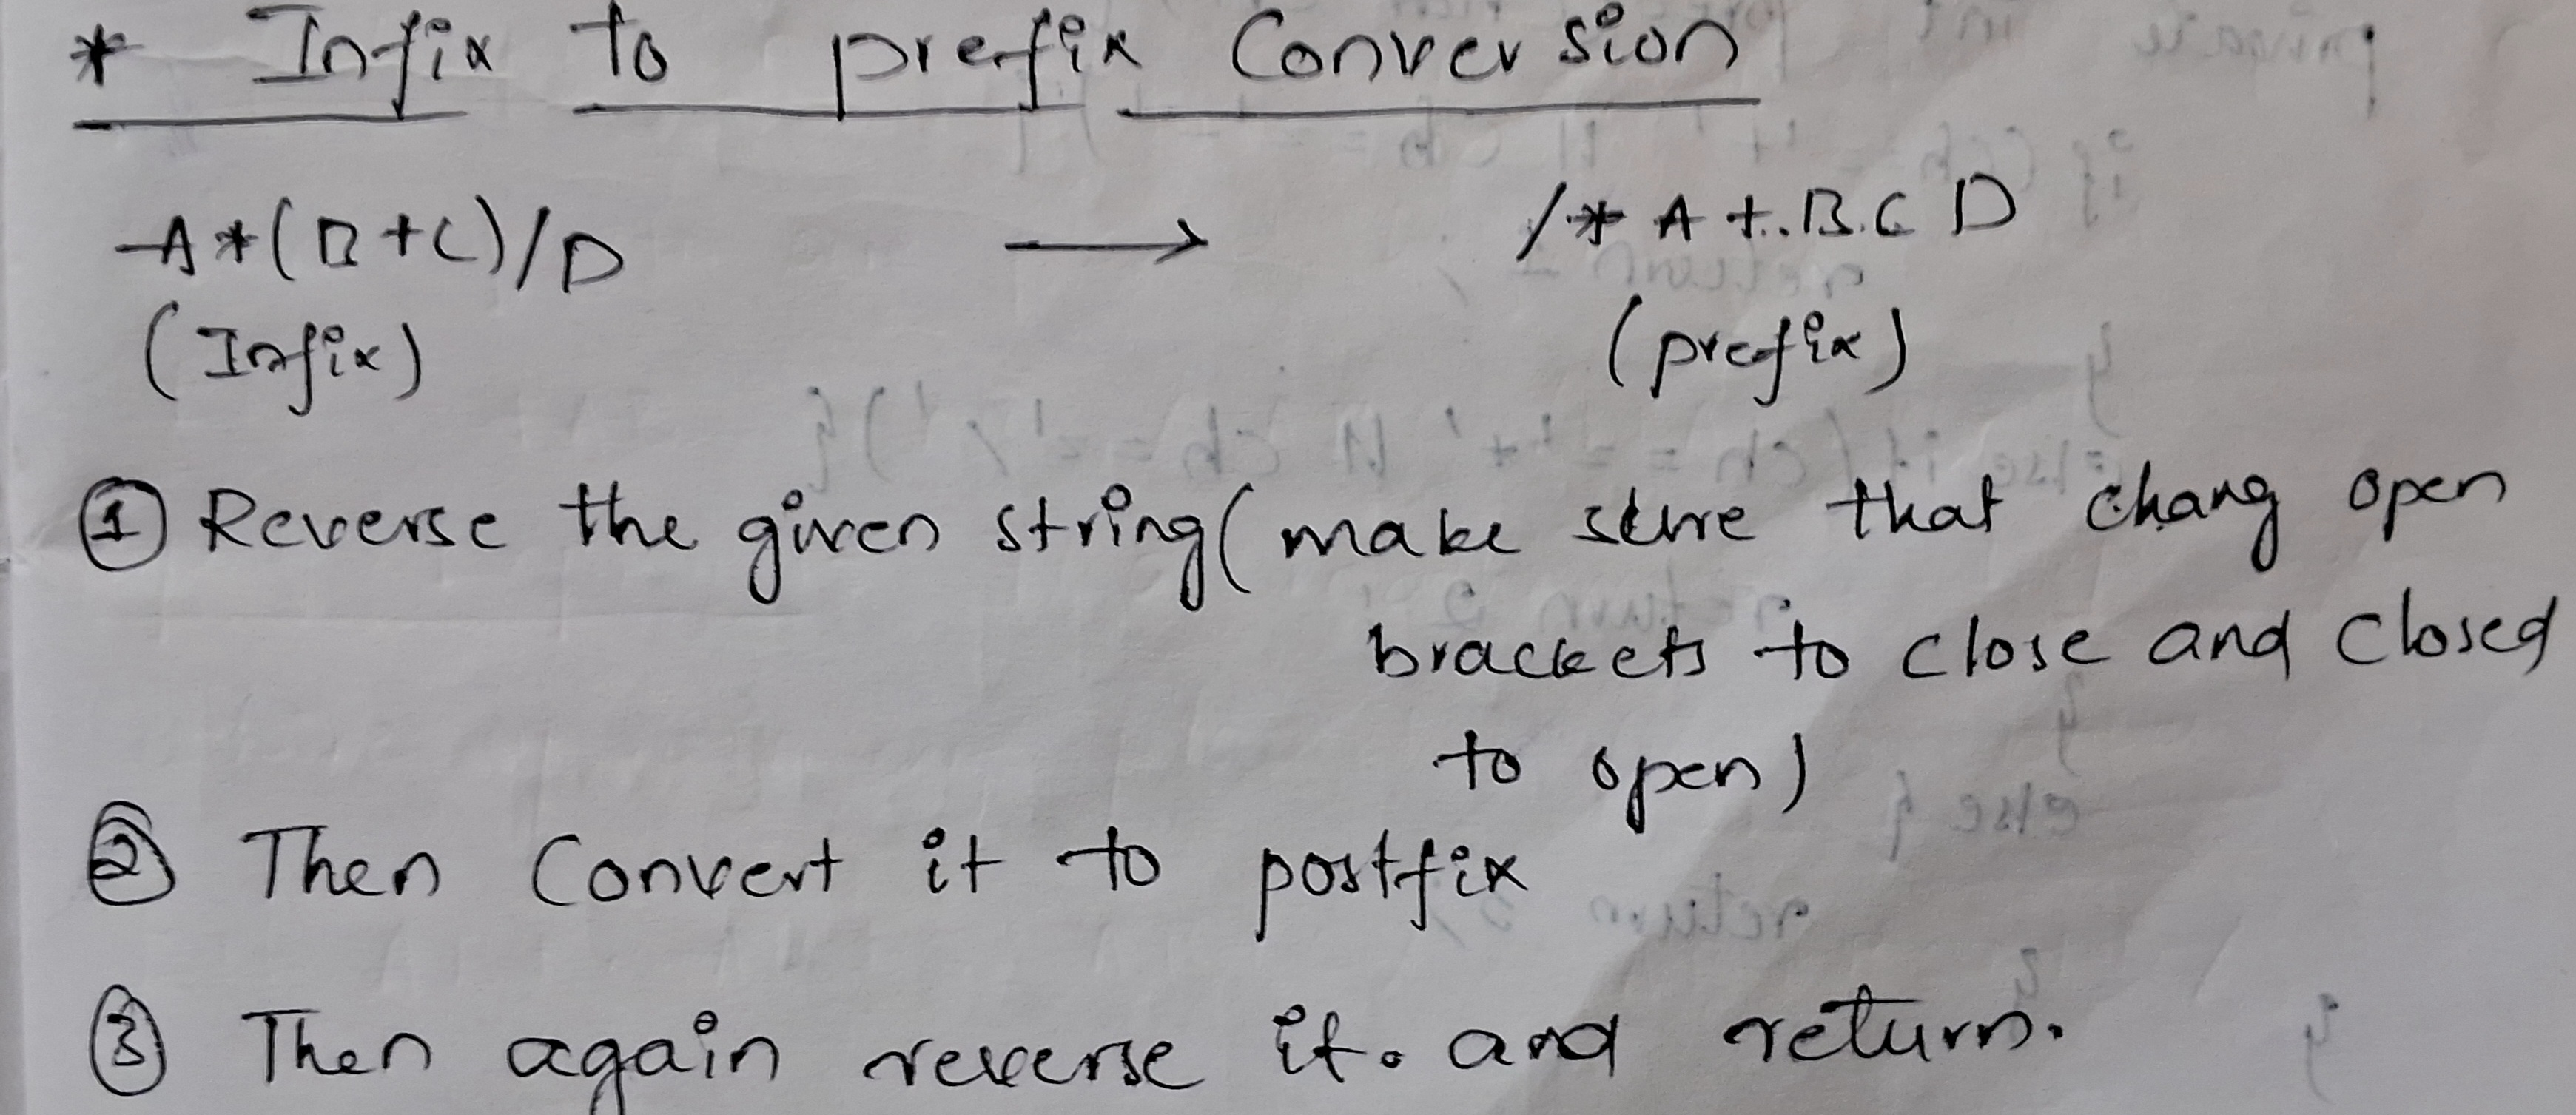 * Infix to prefix Conversion
A*(B+C)/D → /* A +.B.C D
(Infix) (prefix)
① Reverse the given string (make sure that chang open
brackets to close and closed
to open)
② Then Convert it to postfix
③ Then again reverse it. and return.